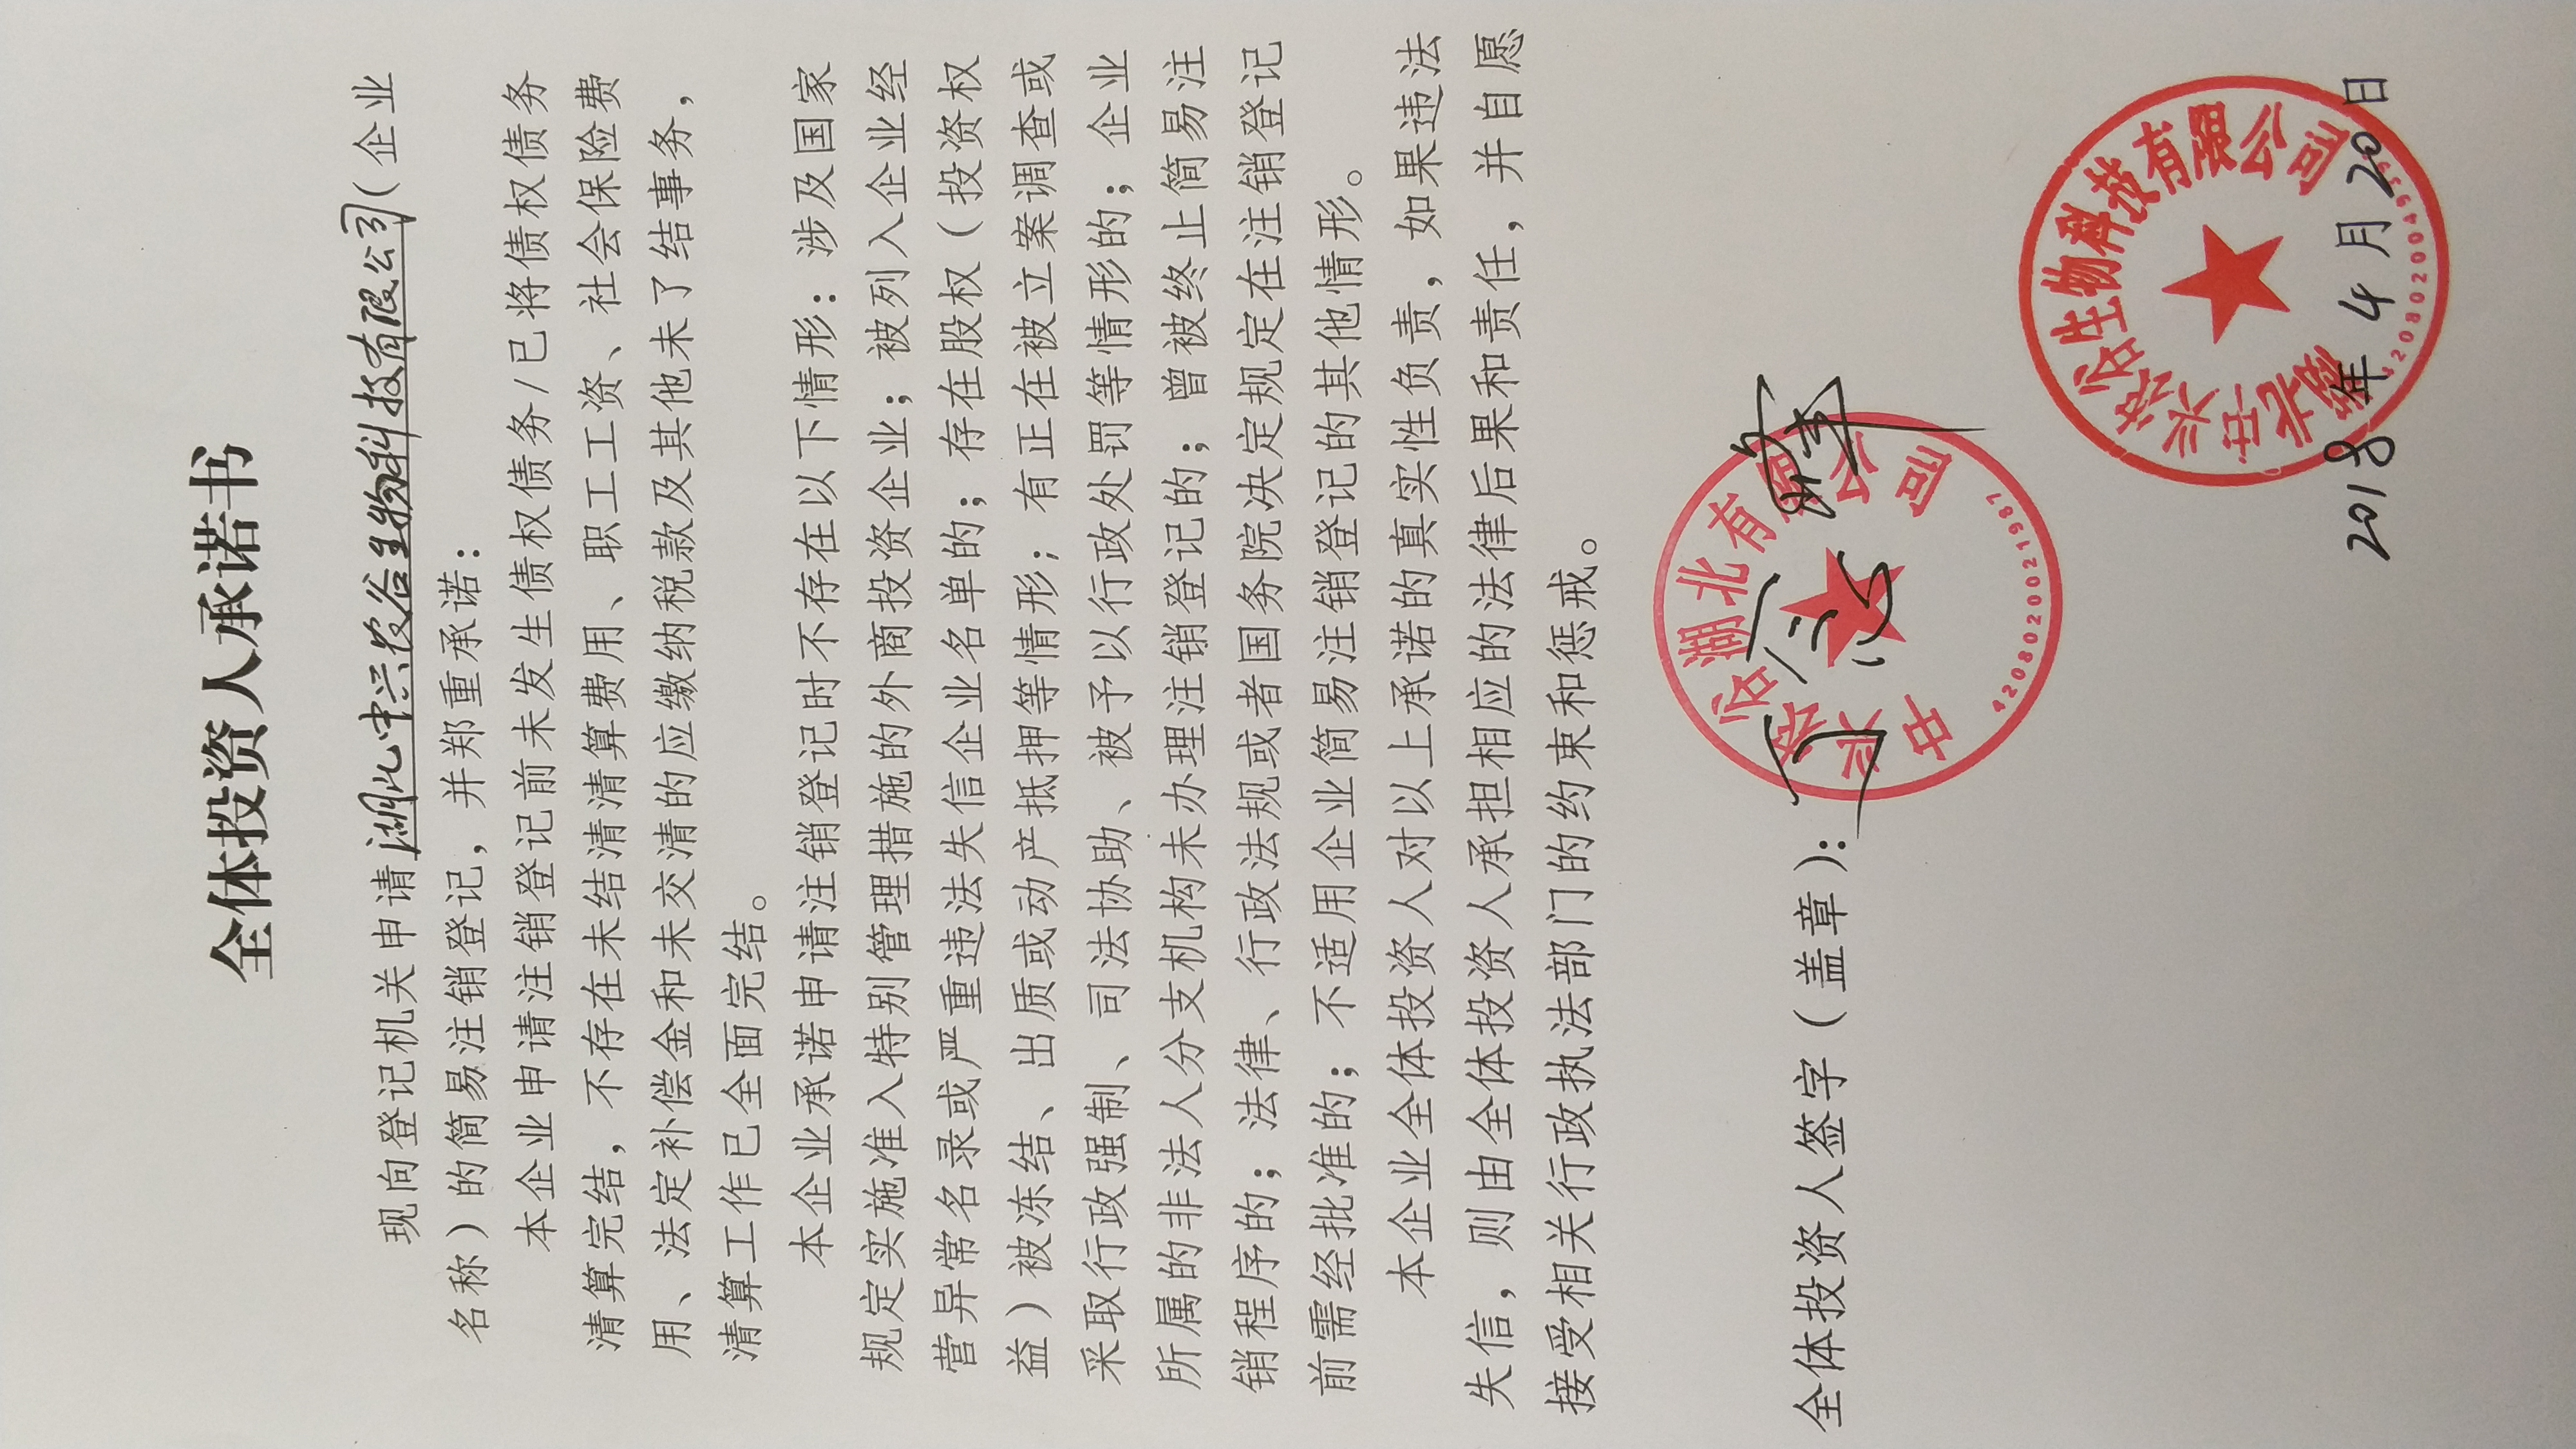 全体投资人承诺书
现向登记机关申请湖北中兴农谷生物科技有限公司(企业
名称)的简易注销登记，并郑重承诺：
本企业申请注销登记前未发生债权债务/已将债权债务
清算完结，不存在未结清清算费用、职工工资、社会保险费
用、法定补偿金和未交清的应缴纳税款及其他未了结事务，
清算工作已全面完结。
本企业承诺申请注销登记时不存在以下情形：涉及国家
规定实施准入特别管理措施的外商投资企业；被列入企业经
营异常名录或严重违法失信企业名单的；存在股权（投资权
益）被冻结、出质或动产抵押等情形；有正在被立案调查或
采取行政强制、司法协助、被予以行政处罚等情形的；企业
所属的非法人分支机构未办理注销登记的；曾被终止简易注
销程序的；法律、行政法规或者国务院决定规定在注销登记
前需经批准的；不适用企业简易注销登记的其他情形。
本企业全体投资人对以上承诺的真实性负责，如果违法
失信，则由全体投资人承担相应的法律后果和责任，并自愿
接受相关行政执法部门的约束和惩戒。
全体投资人签字（盖章）：
中兴农谷湖北有限公司
4208020021987
湖北中兴农谷生物科技有限公司
2018年4月20日